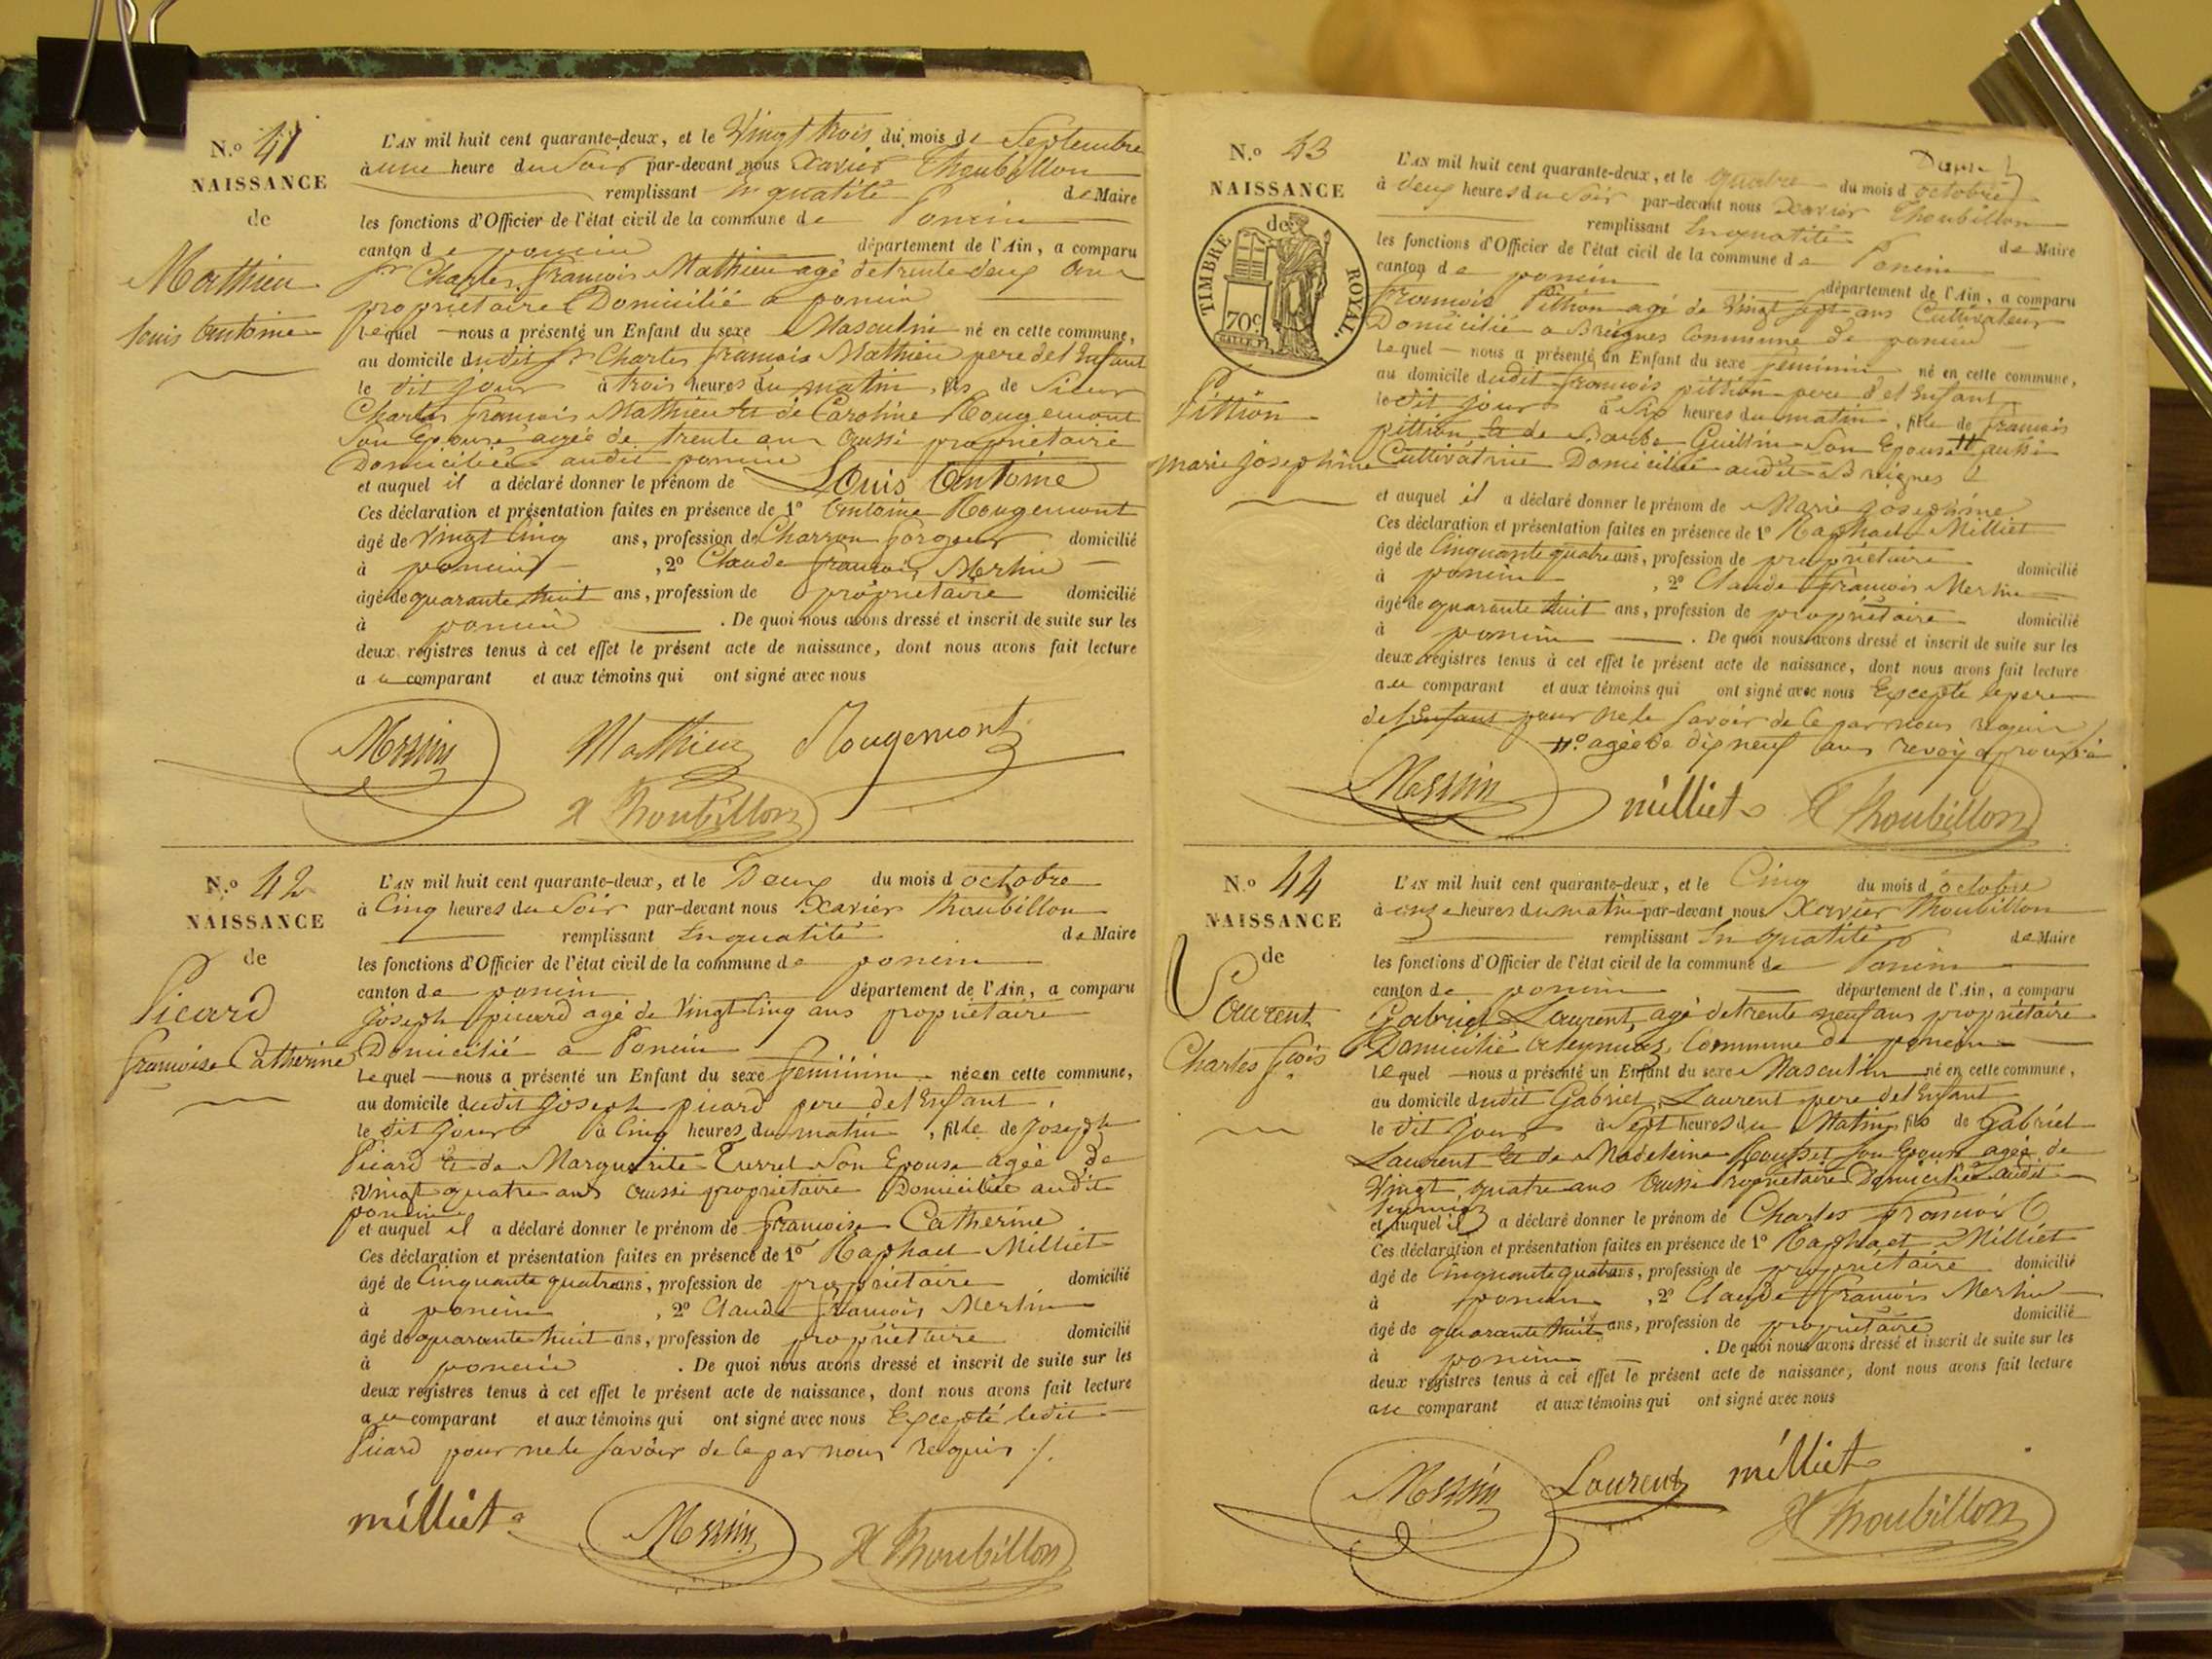 N.o 41
NAISSANCE
de
Mathieu
Louis Antoine
L'AN mil huit cent quarante-deux, et le Vingt trois du mois de Septembre
à une heure du Soir par-devant nous Xavier Thoubillon
remplissant En qualité de Maire
les fonctions d'Officier de l'état civil de la commune de Poncin
canton de poncin département de l'Ain, a comparu
Sr Charles françois Mathieu agé de trente deux ans
propriétaire Domicilié a poncin
Lequel nous a présenté un Enfant du sexe Masculin né en cette commune,
au domicile dudit Sr Charles françois Mathieu pere del Enfant
le dit jour à trois heures du matin, fils de Sieur
Charles françois Mathieu Et de Caroline Rougemont
Son Epouse agée de trente ans Aussi propriétaire
Domiciliée audit poncin
et auquel il a déclaré donner le prénom de Louis Antoine
Ces déclaration et présentation faites en présence de 1o Antoine Rougemont
âgé de Vingt Cinq ans, profession de Charron forgeur domicilié
à poncin, 2o Claude françois Merlin
âgé de quarante huit ans, profession de propriétaire domicilié
à poncin. De quoi nous avons dressé et inscrit de suite sur les
deux registres tenus à cet effet le présent acte de naissance, dont nous avons fait lecture
au comparant et aux témoins qui ont signé avec nous
Mathieu Rougemont
X Thoubillon
N.o 42
NAISSANCE
de
Picard
françoise Catherine
L'AN mil huit cent quarante-deux, et le Deux du mois d octobre
à Cinq heures du Soir par-devant nous Xavier Thoubillon
remplissant En qualité de Maire
les fonctions d'Officier de l'état civil de la commune de poncin
canton de poncin département de l'Ain, a comparu
Joseph picard agé de Vingt Cinq ans propriétaire
Domicilié a Poncin
Lequel nous a présenté un Enfant du sexe feminin née en cette commune,
au domicile dudit Joseph picard pere del Enfant,
le dit jour à Cinq heures du matin, fille de Joseph
Picard Et de Marguerite Turrel Son Epouse agée de
Vingt quatre ans Aussi propriétaire Domiciliée audit
poncin
et auquel il a déclaré donner le prénom de françoise Catherine
Ces déclaration et présentation faites en présence de 1o Raphael Milliet
âgé de Cinquante quatre ans, profession de propriétaire domicilié
à poncin, 2o Claude françois Merlin
âgé de quarante huit ans, profession de propriétaire domicilié
à poncin. De quoi nous avons dressé et inscrit de suite sur les
deux registres tenus à cet effet le présent acte de naissance, dont nous avons fait lecture
au comparant et aux témoins qui ont signé avec nous Excepté ledit
Picard pour ne le savoir de ce par nous requis /.
milliet X Thoubillon
N.o 43
NAISSANCE
de
TIMBRE ROYAL.
70c
Pittion
marie josephine
L'AN mil huit cent quarante-deux, et le quatre du mois d octobre
à deux heures du Soir par-devant nous Xavier Thoubillon
remplissant En qualité de Maire
les fonctions d'Officier de l'état civil de la commune de Poncin
canton de poncin département de l'Ain, a comparu
François Pithon agé de Vingt Sept ans Cultivateur
Domicilié a Breignes Commune de poncin
Lequel nous a présenté un Enfant du sexe feminin né en cette commune,
au domicile dudit françois pittion pere del Enfant
le dit jour à Six heures du matin, fille de françois
pittion Et de Barbe Guillin Son Epouse # aussi
Cultivatrice Domiciliée audit Breignes
et auquel il a déclaré donner le prénom de Marie Josephine
Ces déclaration et présentation faites en présence de 1o Raphael Milliet
âgé de Cinquante quatre ans, profession de propriétaire domicilié
à poncin, 2o Claude François Merlin
âgé de quarante huit ans, profession de propriétaire domicilié
à poncin. De quoi nous avons dressé et inscrit de suite sur les
deux registres tenus à cet effet le présent acte de naissance, dont nous avons fait lecture
au comparant et aux témoins qui ont signé avec nous Excepté le pere
del Enfant pour ne le savoir de ce par nous requis
#o agée de dix neuf ans
milliet X Thoubillon
N.o 44
NAISSANCE
de
Laurent
Charles fcois
L'AN mil huit cent quarante-deux, et le Cinq du mois d octobre
à onze heures du matin par-devant nous Xavier Thoubillon
remplissant En qualité de Maire
les fonctions d'Officier de l'état civil de la commune de Poncin
canton de poncin département de l'Ain, a comparu
Gabriel Laurent, agé de trente neuf ans propriétaire
Domicilié Commune de poncin
Lequel nous a présenté un Enfant du sexe Masculin né en cette commune,
au domicile dudit Gabriel Laurent pere del Enfant
le dit jour à Sept heures du Matin, fils de Gabriel
Laurent Et de Madeleine Rousset son Epouse agée de
Vingt quatre ans Aussi Propriétaire Domiciliée audit
et auquel il a déclaré donner le prénom de Charles François
Ces déclaration et présentation faites en présence de 1o Raphael Milliet
âgé de Cinquante quatre ans, profession de propriétaire domicilié
à poncin, 2o Claude François Merlin
âgé de quarante huit ans, profession de propriétaire domicilié
à poncin. De quoi nous avons dressé et inscrit de suite sur les
deux registres tenus à cet effet le présent acte de naissance, dont nous avons fait lecture
au comparant et aux témoins qui ont signé avec nous
Laurent milliet
X Thoubillon